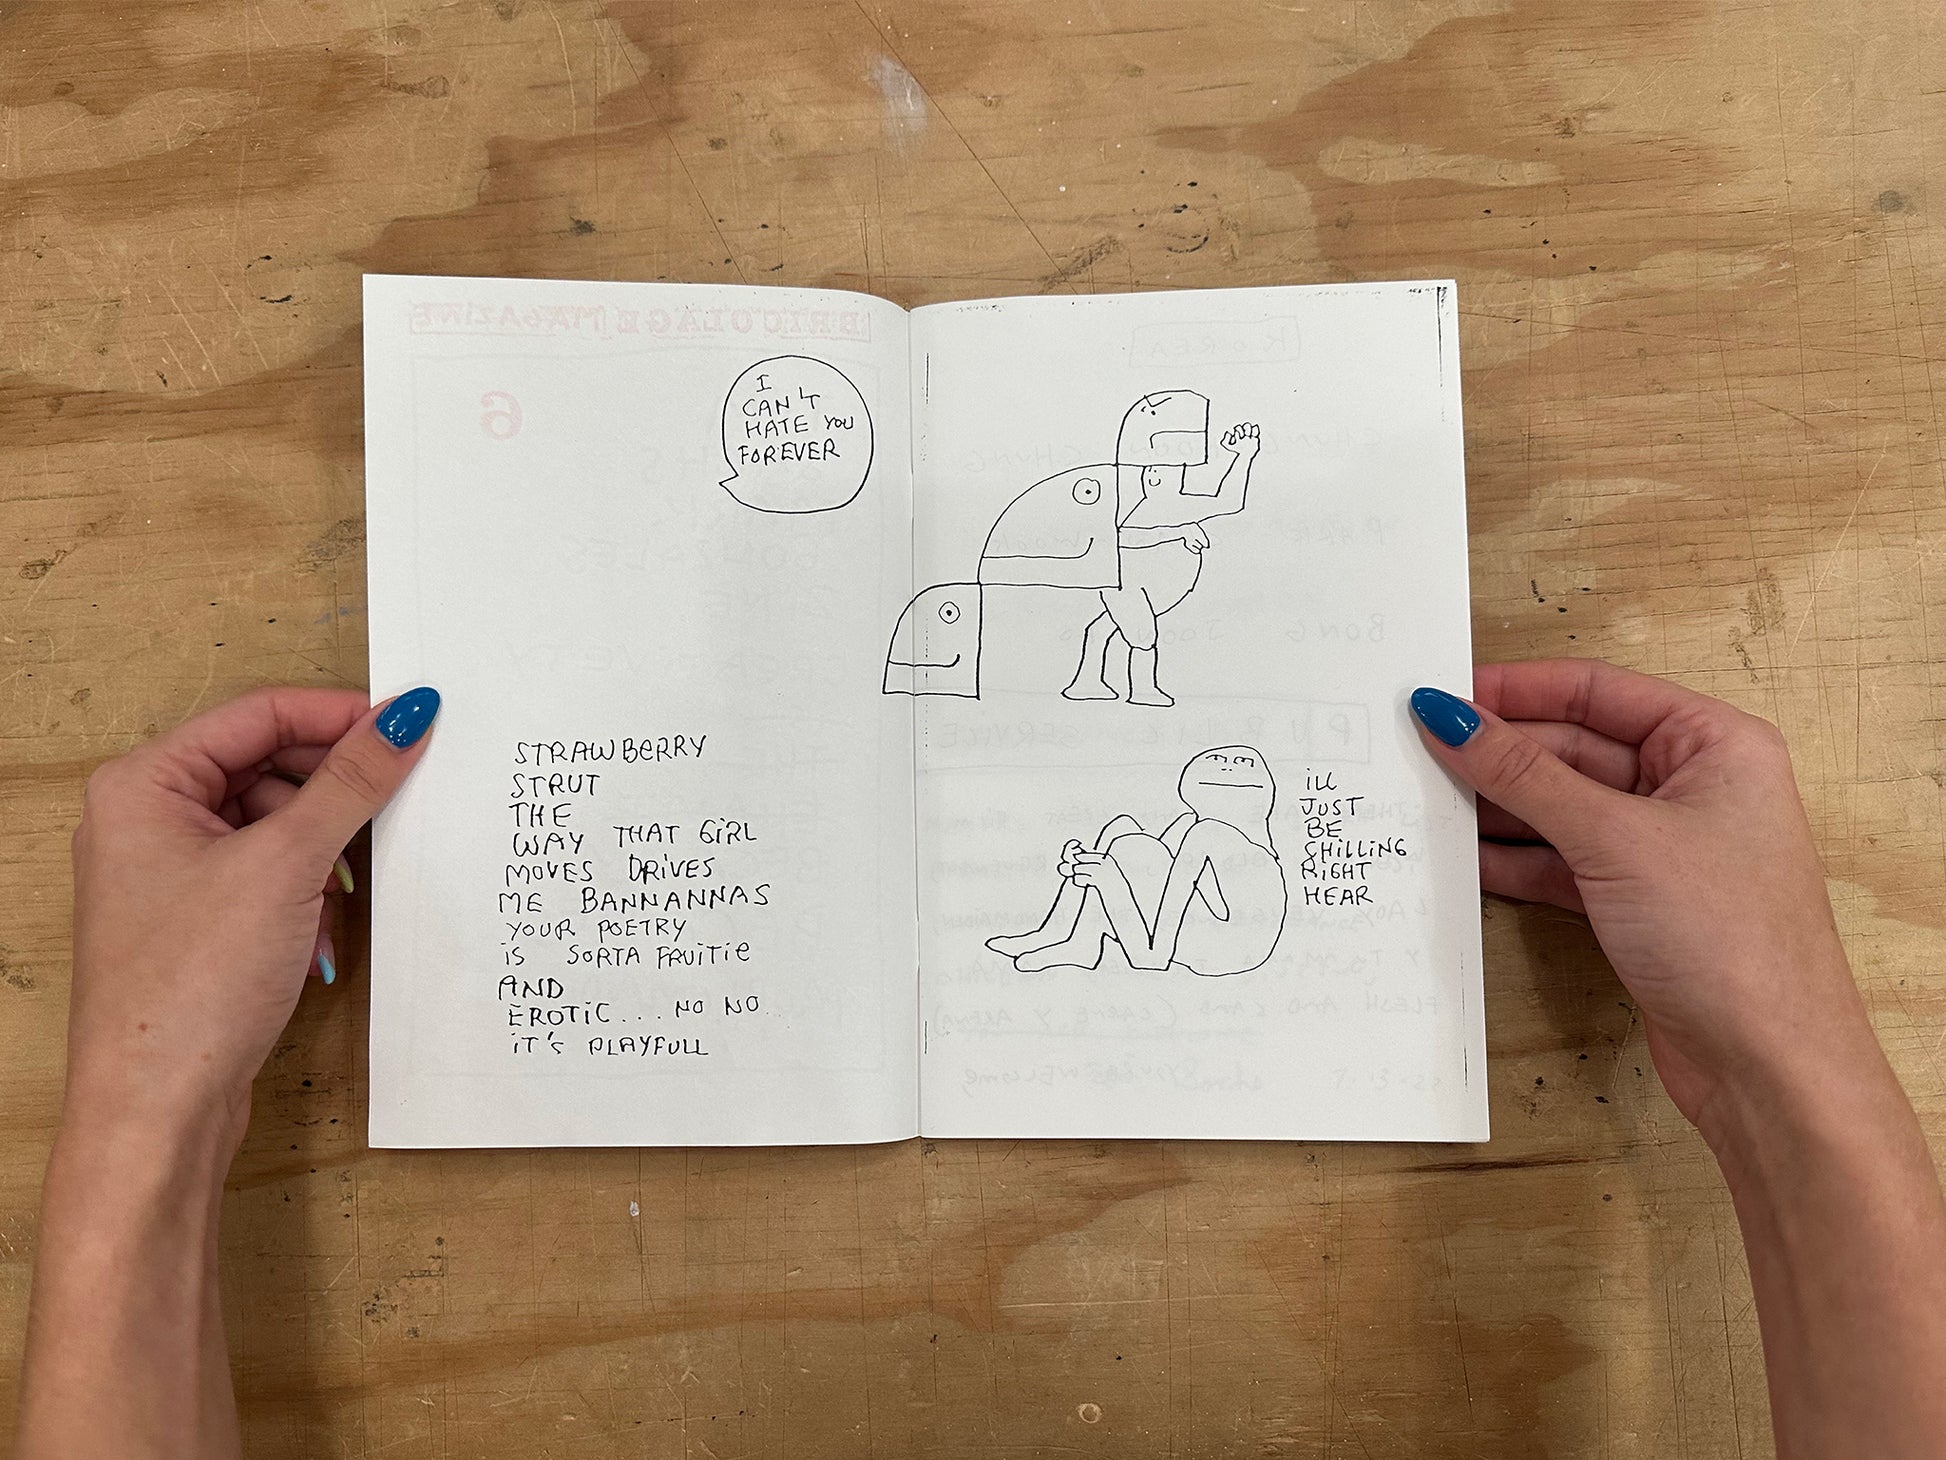 I
CAN'T
HATE YOU
FOREVER
STRAWBERRY
STRUT
THE
WAY THAT GIRL
MOVES DRIVES
ME BANNANNAS
YOUR POETRY
IS SORTA FRUITIE
AND
EROTIC... NO NO...
IT'S PLAYFULL
ILL
JUST
BE
CHILLING
RIGHT
HEAR
BRICOLAGE MAGAZINE
6
KOREA
PUBLIC SERVICE